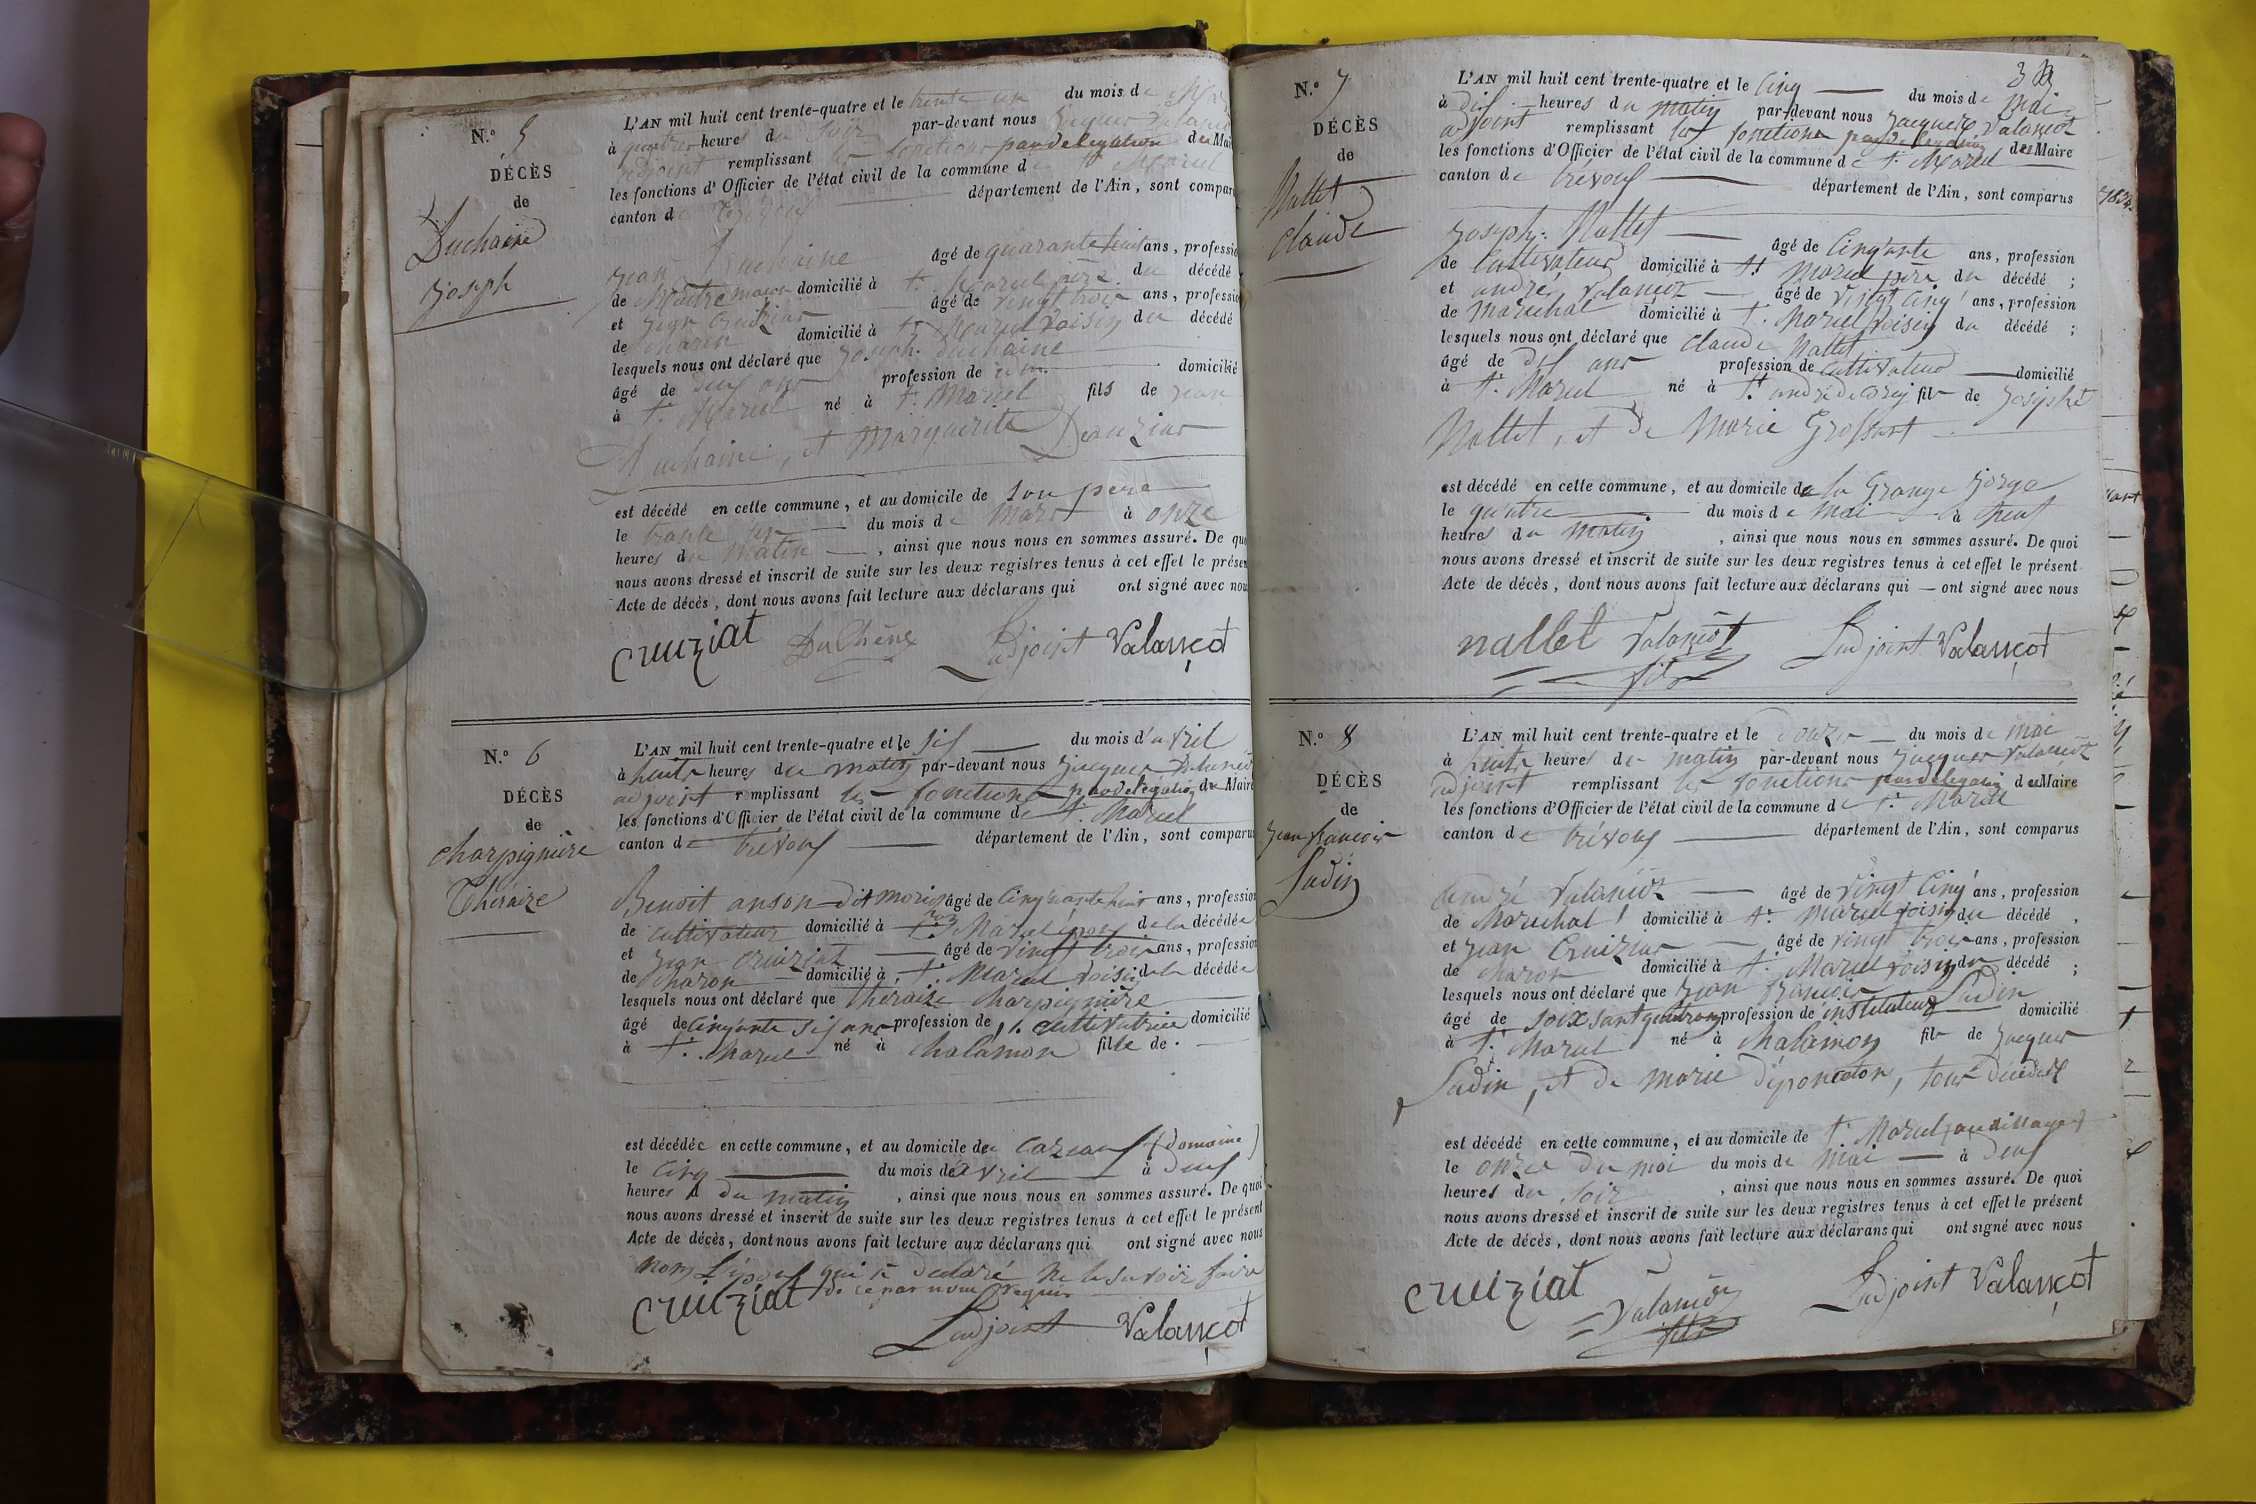 N.º 5
DÉCÈS
de
Duchaine
Joseph
L'AN mil huit cent trente-quatre et le trente un du mois de Mars
à quatre heures du soir par-devant nous Jacques Valançot
adjoint remplissant les fonctions par delegation du Maire
les fonctions d'Officier de l'état civil de la commune de St. Marcel
canton de trévoux département de l'Ain, sont comparus
jean Duchaine âgé de quarante huit ans, profession
de Maitre maçon domicilié à St. Marcel père du décédé
et jean Cruiziat âgé de vingt trois ans, profession
de charon domicilié à St. Marcel voisin du décédé
lesquels nous ont déclaré que joseph Duchaine
âgé de deux ans profession de domicilié
à St. Marcel né à St. Marcel fils de jean
Duchaine, et Marguerite
est décédé en cette commune, et au domicile de son pere
le trente un du mois de mars à onze
heures du matin, ainsi que nous nous en sommes assuré. De quoi
nous avons dressé et inscrit de suite sur les deux registres tenus à cet effet le présent
Acte de décès, dont nous avons fait lecture aux déclarans qui ont signé avec nous
cruiziat DuChêne L'adjoint Valançot
N.º 6
DÉCÈS
de
Charpignière
Théraize
L'AN mil huit cent trente-quatre et le six du mois d'avril
à huit heures du matin par-devant nous Jacques Valançot
adjoint remplissant les fonctions par delegation du Maire
les fonctions d'Officier de l'état civil de la commune de St. Marcel
canton de trévoux département de l'Ain, sont comparus
Benoit anson dit morin âgé de cinquante huit ans, profession
de cultivateur domicilié à St. Marcel époux de la décédée
et jean cruiziat âgé de vingt trois ans, profession
de charon domicilié à St. Marcel voisin de la décédée
lesquels nous ont déclaré que théraize charpignière
âgé de cinquante six ans profession de cultivatrice domicilié
à St. Marcel né à chalamon fille de
est décédée en cette commune, et au domicile de (domaine)
le cinq du mois d'avril à deux
heures du matin, ainsi que nous nous en sommes assuré. De quoi
nous avons dressé et inscrit de suite sur les deux registres tenus à cet effet le présent
Acte de décès, dont nous avons fait lecture aux déclarans qui ont signé avec nous
non l'époux qui a déclaré ne le savoir faire
de ce par nous requis
cruiziat
L'adjoint Valançot
N.º 7
DÉCÈS
de
Nallet
Claude
L'AN mil huit cent trente-quatre et le cinq du mois de mai
à dix heures du matin par-devant nous Jacques Valançot
adjoint remplissant les fonctions par delegation du Maire
les fonctions d'Officier de l'état civil de la commune de St. Marcel
canton de trévoux département de l'Ain, sont comparus
joseph Nallet âgé de cinquante ans, profession
de Cultivateur domicilié à St. Marcel père du décédé ;
et andré Valançot âgé de vingt cinq ans, profession
de maréchal domicilié à St. Marcel voisin du décédé ;
lesquels nous ont déclaré que claude Nallet
âgé de dix ans profession de cultivateur domicilié
à St. Marcel né à St. andré de corcy fils de josephe
Nallet, et de Marie Grossart
est décédé en cette commune, et au domicile de la Grange
le quatre du mois de mai à
heures du matin, ainsi que nous nous en sommes assuré. De quoi
nous avons dressé et inscrit de suite sur les deux registres tenus à cet effet le présent
Acte de décès, dont nous avons fait lecture aux déclarans qui — ont signé avec nous
nallet Valançot L'adjoint Valançot
fils
N.º 8
DÉCÈS
de
jean francois
Sadin
L'AN mil huit cent trente-quatre et le douze du mois de mai
à huit heures du matin par-devant nous jacques Valançot
adjoint remplissant les fonctions par delegation du Maire
les fonctions d'Officier de l'état civil de la commune de St. Marcel
canton de trévoux département de l'Ain, sont comparus
andré Valançot âgé de vingt cinq ans, profession
de Maréchal domicilié à St. Marcel voisin du décédé,
et jean Cruiziat âgé de vingt trois ans, profession
de charon domicilié à St. Marcel voisin du décédé ;
lesquels nous ont déclaré que jean françois Sadin
âgé de profession de instituteur domicilié
à St. Marcel né à chalamon fils de jacques
Sadin, et de marie tous décédés
est décédé en cette commune, et au domicile de St. Marcel (au village)
le onze du moi du mois de mai à deux
heures du soir, ainsi que nous nous en sommes assuré. De quoi
nous avons dressé et inscrit de suite sur les deux registres tenus à cet effet le présent
Acte de décès, dont nous avons fait lecture aux déclarans qui ont signé avec nous
cruiziat Valançot L'adjoint Valançot
fils